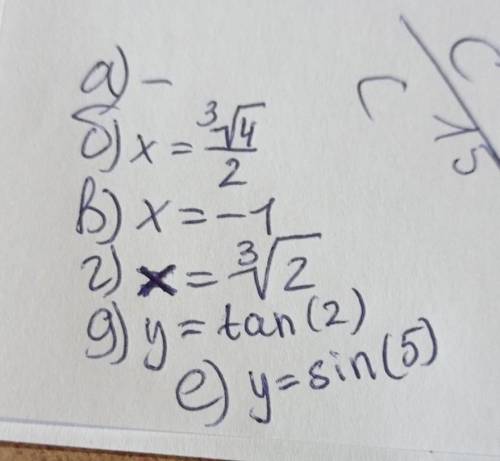 а) –
б) x = ∛4/2
в) x = –1
г) x = ∛2
д) y = tan(2)
е) y = sin(5)
15